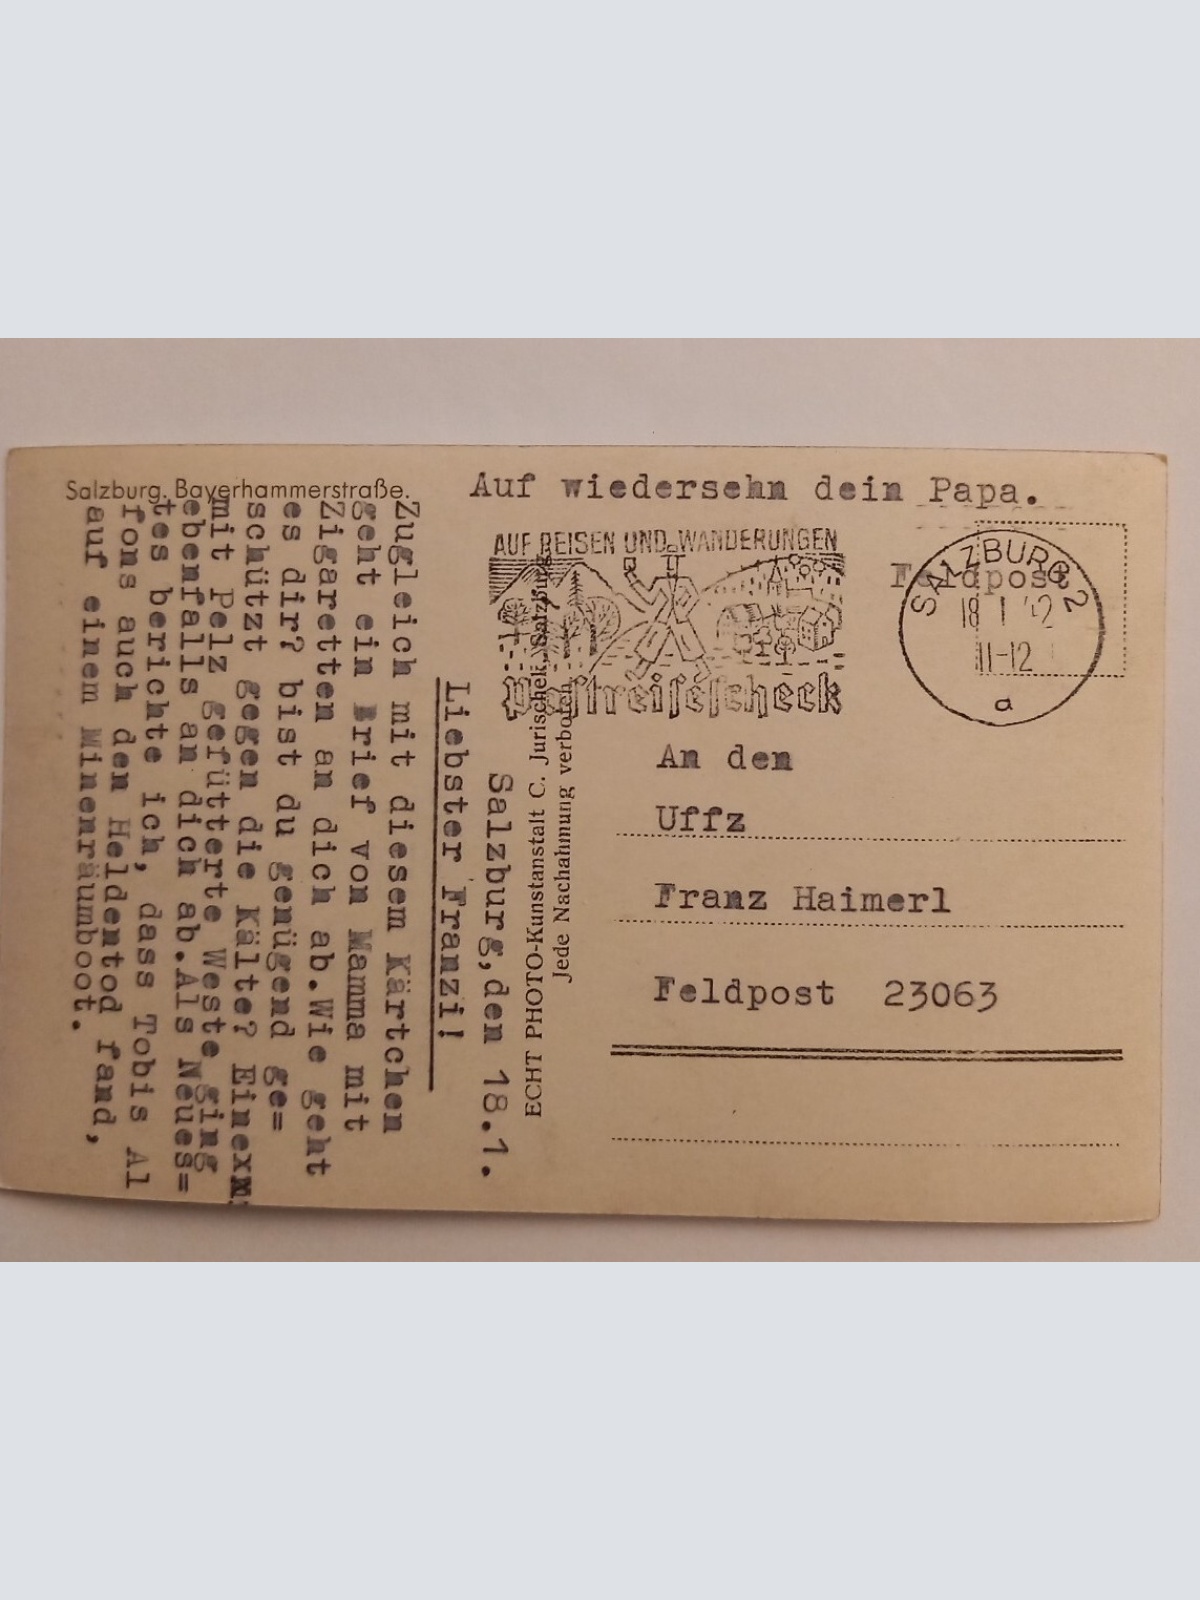 Salzburg, Bayerhammerstraße.
Salzburg,den 18.1.
Liebster Franzi!
Zugleich mit diesem Kärtchen
geht ein Brief von Mamma mit
Zigaretten an dich ab.Wie geht
es dir? bist du genügend ge=
schützt gegen die Kälte? Eine
mit Pelz gefütterte Weste ging
ebenfalls an dich ab.Als Neues=
tes berichte ich, dass Tobis Al
fons auch den Heldentod fand,
auf einem Minenräumboot.
Auf wiedersehn dein Papa.
ECHT PHOTO-Kunstanstalt C. Jurischek, Salzburg
Jede Nachahmung verboten
AUF REISEN UND WANDERUNGEN
Postreisescheck
Feldpost
SALZBURG 2
18 1 42
11-12
a
An den
Uffz
Franz Haimerl
Feldpost 23063